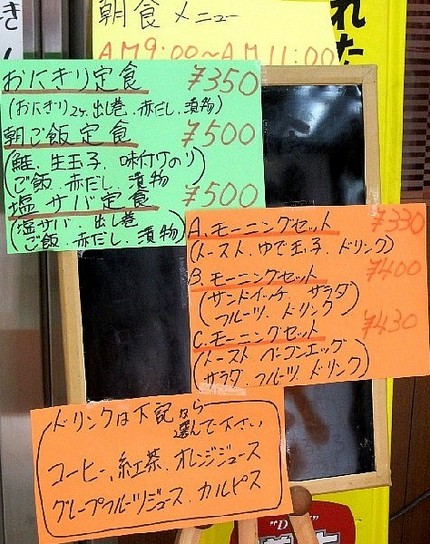 朝食メニュー
AM9:00～AM11:00
おにぎり定食 ¥350
(おにぎり2ヶ.出し巻.赤だし.漬物)
朝ご飯定食 ¥500
(鮭.生玉子.味付けのり
ご飯.赤だし.漬物)
塩サバ定食 ¥500
(塩サバ.出し巻
ご飯.赤だし.漬物)
A.モーニングセット ¥330
(トースト.ゆで玉子.ドリンク)
B.モーニングセット ¥400
(サンドイッチ サラダ
フルーツ.ドリンク)
C.モーニングセット ¥430
(トースト ベーコンエッグ
サラダ.フルーツ.ドリンク)
ドリンクは下記なら
選んで下さい
コーヒー.紅茶.オレンジジュース
グレープフルーツジュース.カルピス
き
れた
"D